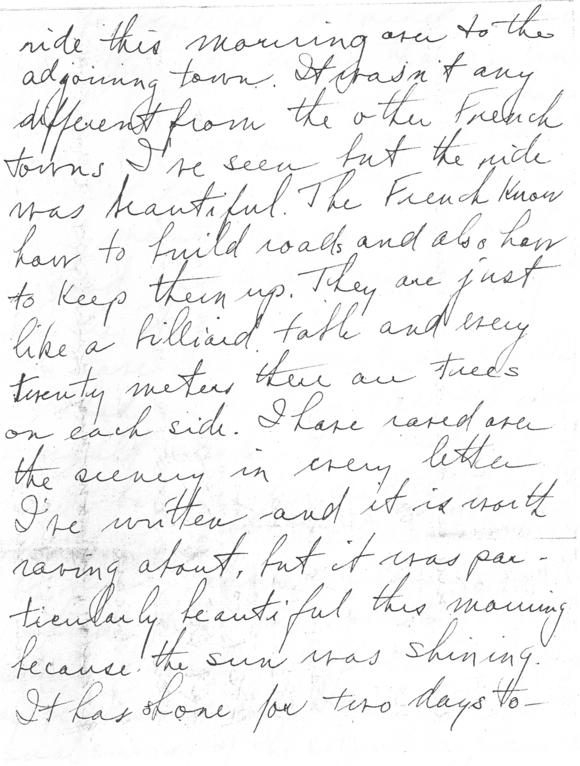 ride this morning over to the
adjoining town. It wasn't any
different from the other French
towns I've seen but the ride
was beautiful. The French know
how to build roads and also how
to keep them up. They are just
like a billiard table and every
twenty meters there are trees
on each side. I have raved over
the scenery in every letter
I've written and it is worth
raving about, but it was par-
ticularly beautiful this morning
because the sun was shining.
It has shone for two days to-